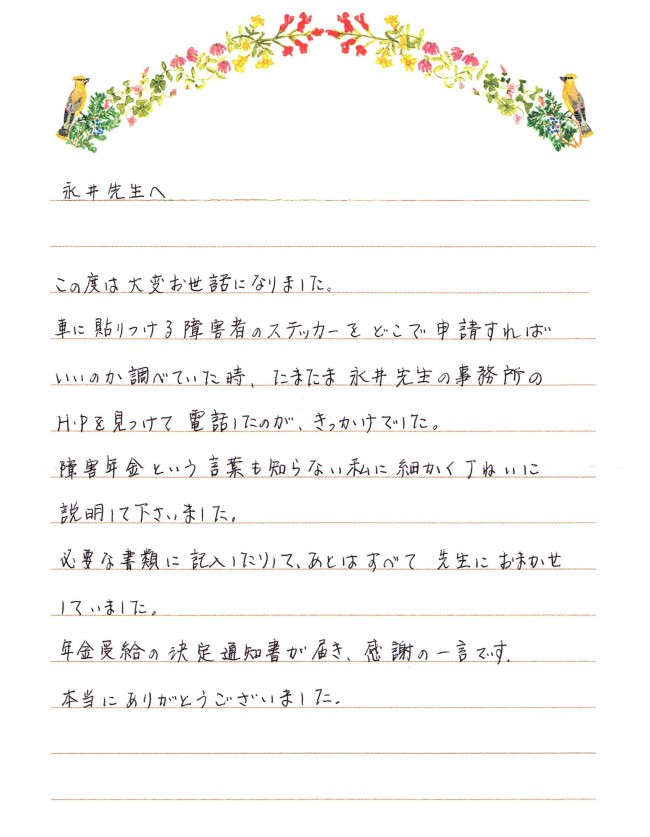 永井先生へ
この度は大変お世話になりました。
車に貼りつける障害者のステッカーをどこで申請すれば
いいのか調べていた時、たまたま永井先生の事務所の
H・Pを見つけて電話したのが、きっかけでした。
障害年金という言葉も知らない私に細かく丁ねいに
説明して下さいました。
必要な書類に記入したりして、あとはすべて先生におまかせ
していました。
年金受給の決定通知書が届き、感謝の一言です.
本当にありがとうございました.